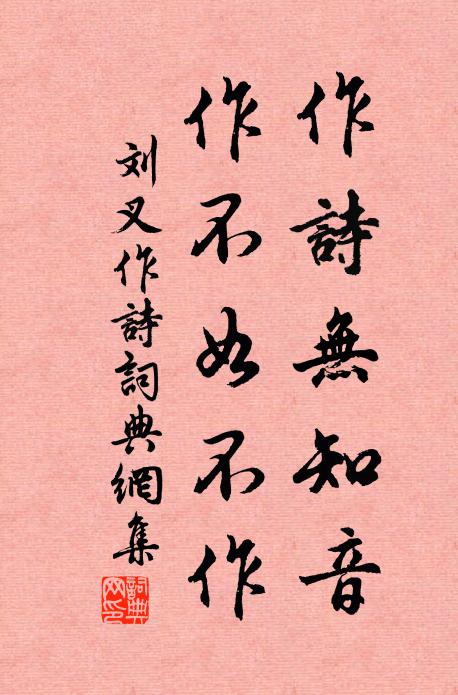 作詩無知音
作不如不作
刘叉作詩詞典網集
詞典
网印